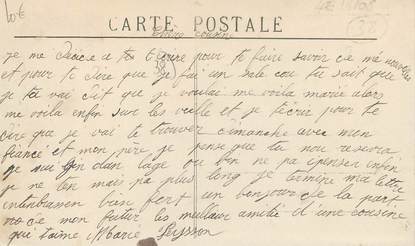 Lot
CARTE POSTALE
chère cousine
je me décide a te écrire pour te faire savoir de mé nouvelles
et pour te dire que je fai un sale cou tu sait que
je tu vai dit que je voulai me voila marié alors
me voila enfin sur les veille et je técrir pour te
dire que je vai le trouver dimanche avec mon
fiancé et mon père je pense que tu nou resevra
je sui dan lage ou ben ne pa épenser enfin
je ne len mais pa plus long je termine ma lettre
enlenbrassen bien fort un bonjour de la part
de mon futur les meilleur amitié d'une cousine
qui taime Marie